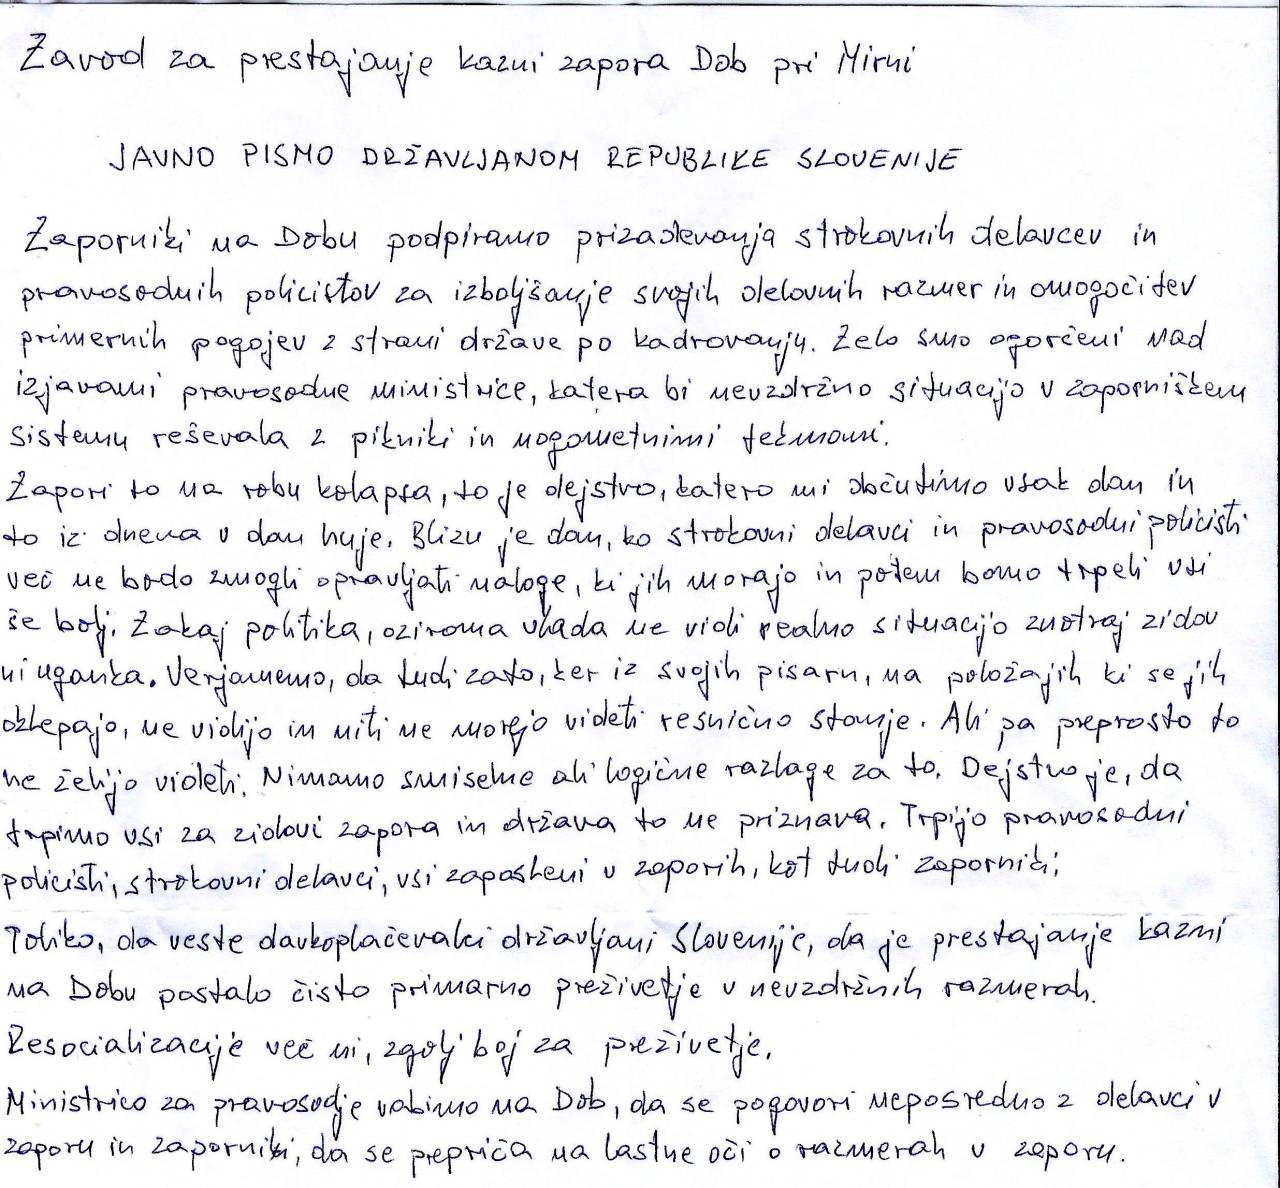 Zavod za prestajanje kazni zapora Dob pri Mirni
JAVNO PISMO DRŽAVLJANOM REPUBLIKE SLOVENIJE
Zaporniki na Dobu podpiramo prizadevanja strokovnih delavcev in
pravosodnih policistov za izboljšanje svojih delovnih razmer in omogočitev
primernih pogojev z strani države po kadrovanju. Zelo smo ogorčeni nad
izjavami pravosodne ministrice, katera bi nevzdržno situacijo v zaporniškem
sistemu reševala z pikniki in nogometnimi tekmami.
Zapori to na robu kolapsa, to je dejstvo, katero mi občutimo vsak dan in
to iz dneva v dan huje. Blizu je dan, ko strokovni delavci in pravosodni policisti
več ne bodo zmogli opravljati naloge, ki jih morajo in potem bomo trpeli vsi
še bolj. Zakaj politika, oziroma vlada ne vidi realno situacijo znotraj zidov
ni uganka. Verjamemo, da tudi zato, ker iz svojih pisarn, na položajih ki se jih
oklepajo, ne vidijo in niti ne morejo videti resnično stanje. Ali pa preprosto to
ne želijo videti. Nimamo smiselne ali logične razlage za to. Dejstvo je, da
trpimo vsi za zidovi zapora in država to ne priznava. Trpijo pravosodni
policisti, strokovni delavci, vsi zaposleni v zaporih, kot tudi zaporniki;
Toliko, da veste davkoplačevalci državljani Slovenije, da je prestajanje kazni
na Dobu postalo čisto primarno preživetje v nevzdržnih razmerah.
Resocializacije več ni, zgolj boj za preživetje.
Ministrico za pravosodje vabimo na Dob, da se pogovori neposredno z delavci v
zaporu in zaporniki, da se prepriča na lastne oči o razmerah v zaporu.